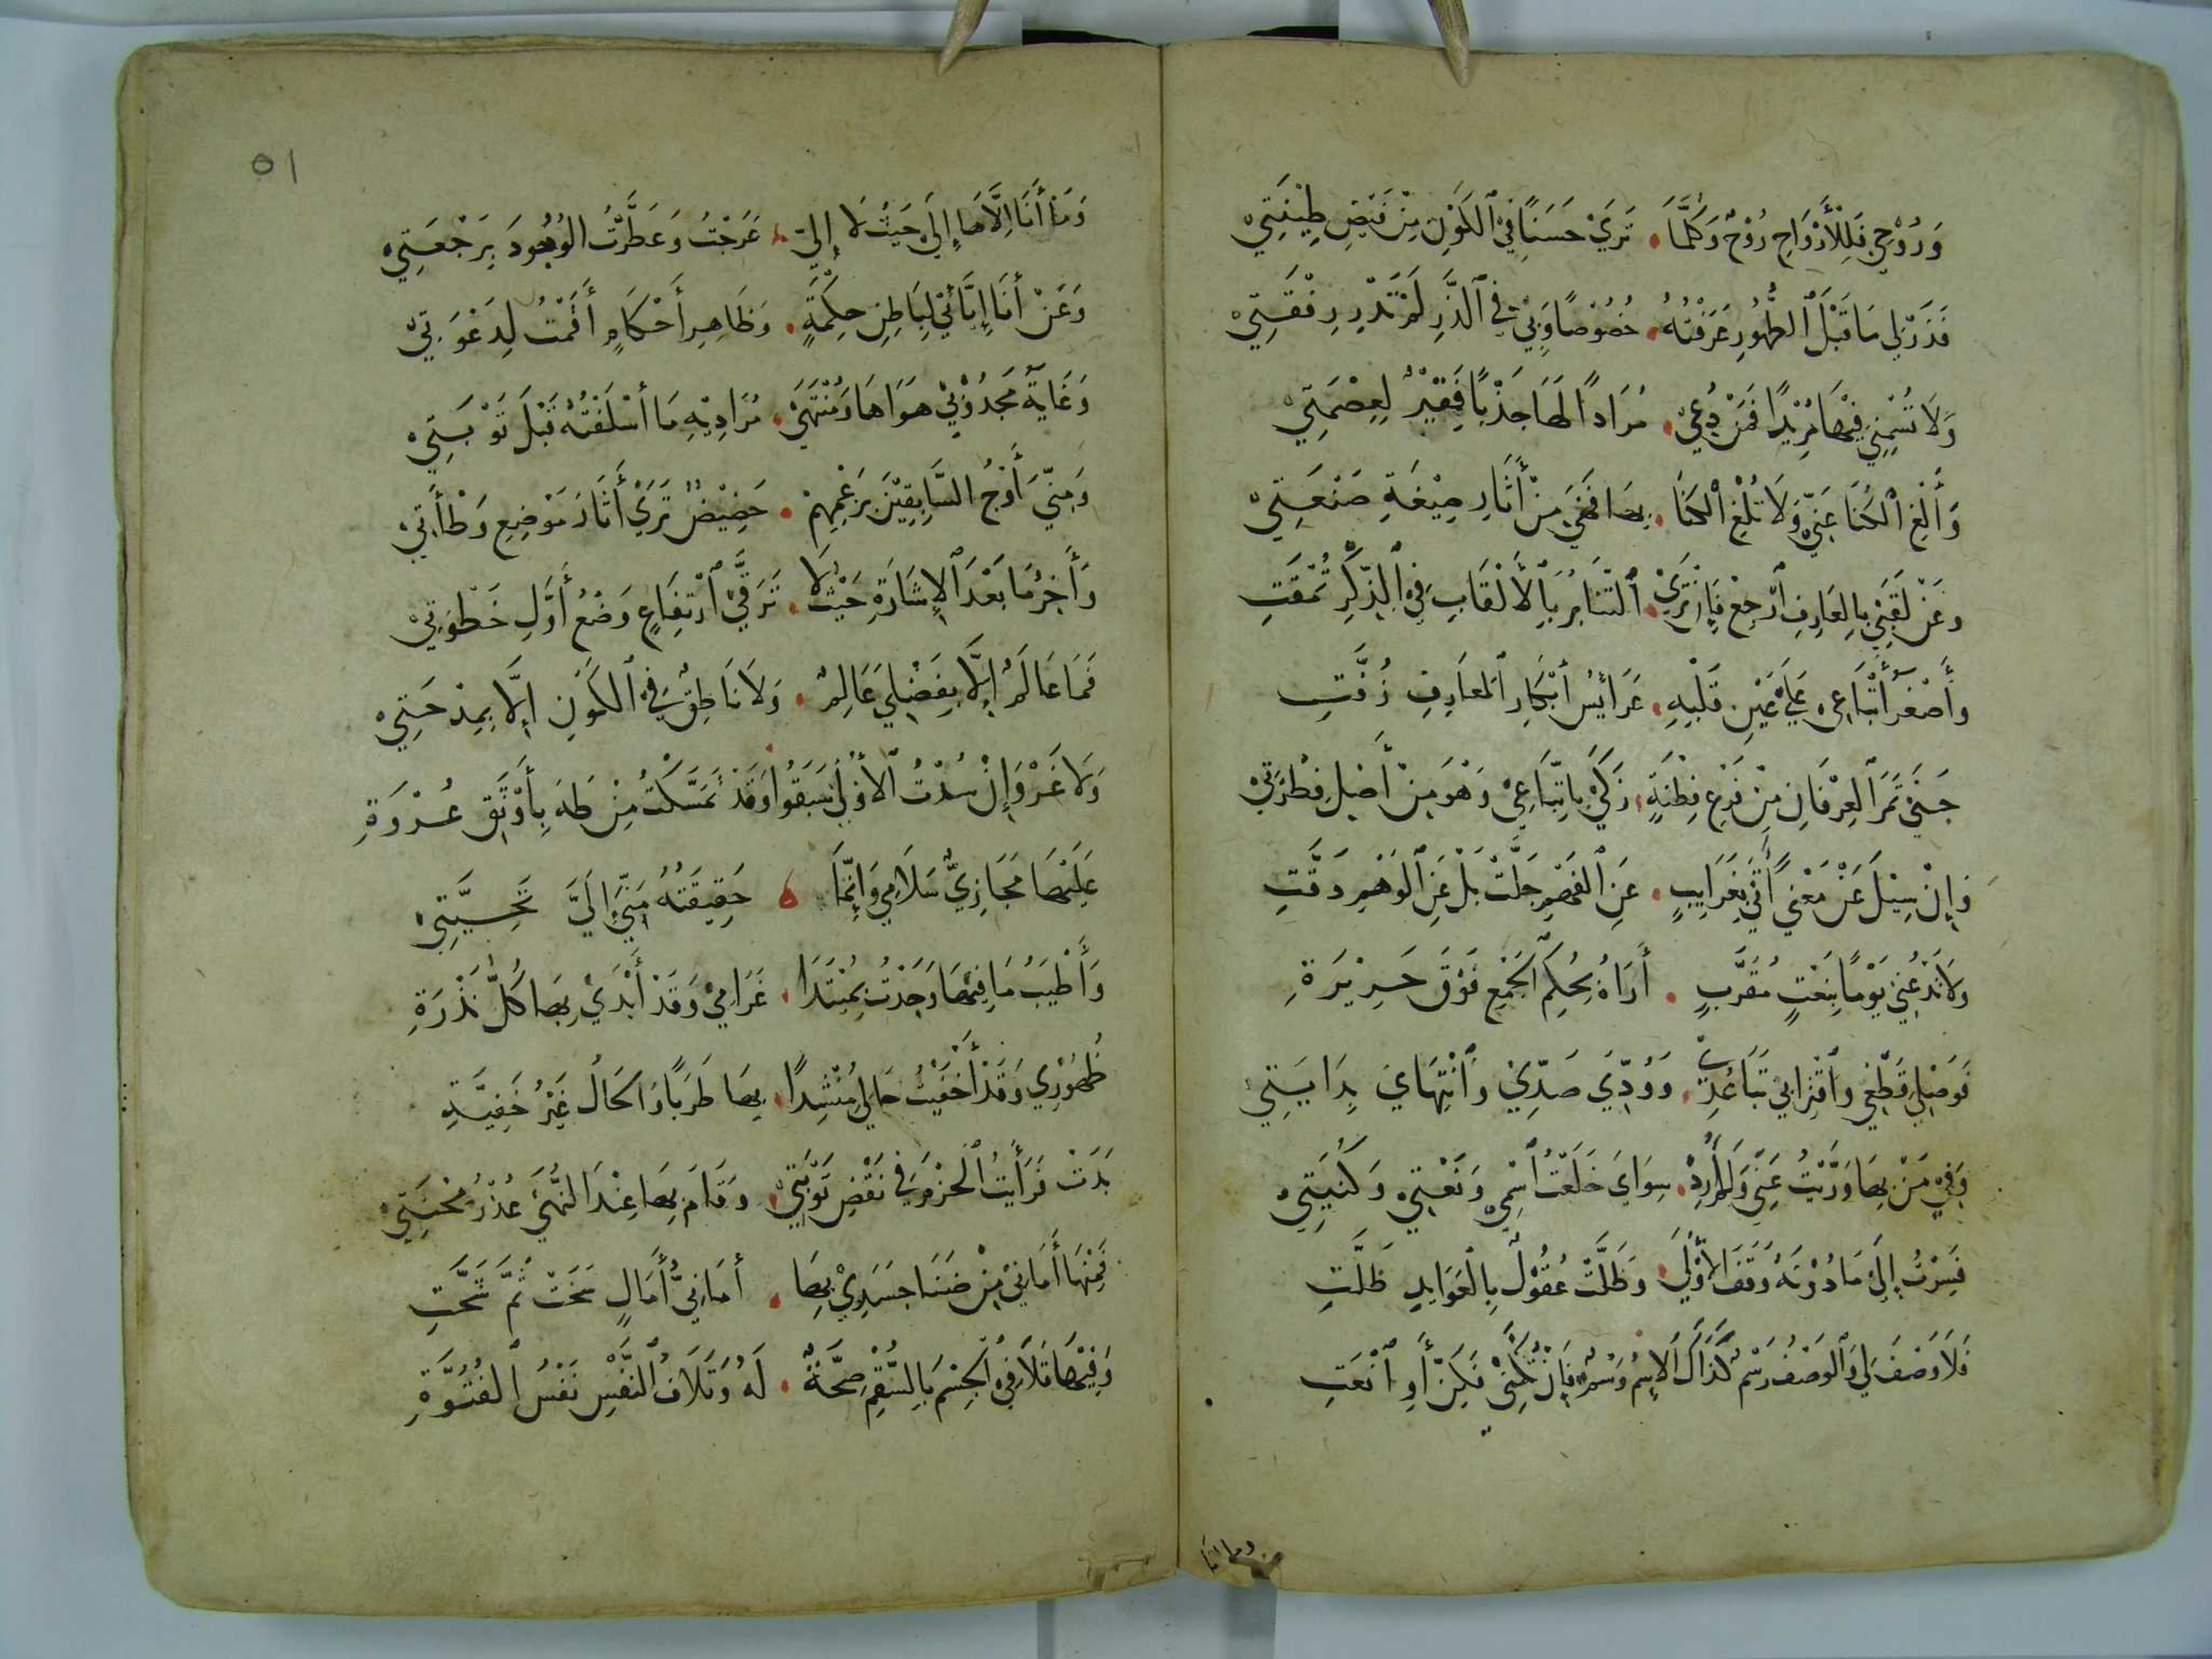 وَرُوْحِيَ لِلْأَرْوَاحِ رُوْحٌ وَكُلَّمَا . تَرَيْ حَسَنًا فِيْ ٱلْكَوْنِ مِنْ فَيْضِ طِيْنَتِيْ
فَذَرْ لِي مَا قَبْلَ ٱلظُّهُورِ عَرَفْتُهُ . خُصُوْصًا وَبِيْ فِي ٱلذَّرِ لَمْ تَدْرِ رِفْقَتِيْ
وَلَا تُسْمِنِيْ فِيْهَا مُرِيْدًا فَمَنْ دُعِيْ . مُرَادًا لَهَا جَذْبًا فَقِيْرٌ لِعِصْمَتِيْ
وَأَلْغِ ٱلْكُنَا عَنِّيْ وَلَا تُلْغِ ٱلْكَنًا . بِهَا فَهْيَ مِنْ أَثَارِ صِيْغَةِ صَنْعَتِيْ
وَعَنْ لَقَبِيْ بِالعَارِفِ ٱرْجِعْ فَإِنْ تَرَيْ . ٱلتَّنَابُزَ بِٱلأَلْقَابِ فِيْ ٱلذِّكْرِ تُمْقَتِ
وَأَصْغَرُ أَتْبَاعِي عَلَيْ عَيْنِ قَلْبِهِ . عَرَائِسُ أَبْكَارِ ٱلمَعَارِفِ زُفَّتِ
جَنَيْ ثَمَرَ ٱلعِرْفَانِ مِنْ فَرْعِ فِطْنَةٍ . زَكَيْ بِاتِّبَاعِيْ وَهْوَ مِنْ أَصْلِ فِطْرَتِيْ
فَإِنْ سِيْلَ عَنْ مَعْنًي أَتَيْ بِغَرَايِبٍ . عَنِ ٱلفَهْمِ جَلَّتْ بَلْ عَنِ ٱلوَهْمِ دَقَّتِ
وَلَا تَدْعُنِيْ يَوْمًا بِنَعْتِ مُقَرَّبٍ . أَرَاهُ بِحُكْمِ ٱلجَمْعِ فَوْقَ جَرِيْرَةِ
فَوَصْلِيْ قَطْعِيْ وَٱقْتِرَابِيْ تَبَاعُدِيْ . وَوُدِّيَ صَدِّيْ وَٱنْتِهَايَ بِدَايَتِيْ
وَفِيْ مَنْ بِهَا وَرَّيْتُ عَنِّيْ وَلَمْ أُرِدْ . سِوَايَ خَلَعْتُ ٱسْمِيْ وَنَعْتِيْ وَكُنْيَتِيْ
فَسِرْتُ إِلَيْ مَا دُوْنَهُ وَقَفَ الأُوْلَيْ . وَظَلَّتْ عُقُوْلٌ بِالْعَوَايِدِ ظَلَّتِ
فَلَا وَصْفَ لِي وَٱلوَصْفُ رَسْمٌ كَذَاكَ ٱلاِسْمُ وَسْمٌ فَإِنْ تُكْنِيْ فَكَنِّ أَوِ ٱنْعَتِ
وما انا
٥١
وَمَا أَنَا إِلَّاهَا إِلَيْ حَيْثُ لَا إِلَيْ . عَرَجْتُ وَعَطَّرْتُ الوُجُودَ بِرَجْعَتِيْ
وَعَنْ أَنَا إِيَّائِيْ لِبَاطِنِ حِكْمَةٍ . وَظَاهِرِ أَحْكَامٍ أَقَمْتُ لِدَعْوَتِيْ
وَغَايَةُ مَجْذُوْبِيْ هَوَاهَا وَمُنْتَهَيْ . مُرَادِيْهِ مَا أَسْلَفْتُهُ قَبْلَ تَوْبَتِيْ
وَمِنِّيَ أَوْجُ السَّابِقِيْنَ بِزَعْمِهِمْ . حَضِيْضُ تَرَيْ أَثَارَ مَوْضِعِ وَطْأَتِيْ
وَأَخِرُ مَا بَعْدَ ٱلإِشَارَةِ حَيْثُ لَا . تَرَقِّيَ ٱرْتِفَاعٍ وَضْعُ أَوَّلِ خَطْوَتِيْ
فَمَا عَالَمٌ إِلَّا بِفَضْلِيَ عَالِمٌ . وَلَا نَاطِقٌ فِيْ ٱلكَوْنِ إِلَّا بِمِدْحَتِيْ
وَلَا غَرْوَ إِنْ سُدْتُ ٱلأُوْلَيْ سَبَقُوا وَقَدْ تَمَسَّكْتُ مِنْ طَهَ بِأَوْثَقِ عُرْوَةِ
عَلَيْهَا مَجَازِيٌّ سَلَامِي وَإِنَّمَا . حَقِيْقَتُهُ مِنِّيْ إِلَيَّ تَحِيَّتِيْ
وَأَطْيَبُ مَا فِيْهَا وَجَدْتُ بِمُبْتَدَا . غَرَامِيْ وَقَدْ أَبْدَيْ بِهَا كُلَّ نَذْرَةِ
ظُهُوْرِي وَقَدْ أَخْفَيْتُ حَالِيَ مُنْشِدًا . بِهَا طَرَبًا وَالحَالُ غَيْرُ خَفِيَّةِ
بَدَتْ فَرَأَيْتُ ٱلحَزْمَ فِي نَقْضِ تَوْبَتِيْ . وَقَامَ بِهَا عِنْدَ النُّهَيْ عُذْرُ مِحْنَتِيْ
فَمِنْهَا أَمَانِيْ مِنْ ضَنَا جَسَدِيْ بِهَا . أَمَانِيُّ أَمَالٍ سَخَتْ ثُمَّ شَحَّتِ
وَفِيْهَا تَلَافِيْ ٱلجِسْمِ بِالسُّقْمِ صِحَّةٌ . لَهُ وَتَلَافُ ٱلنَّفْسِ نَفْسُ ٱلفُتُوَّةِ